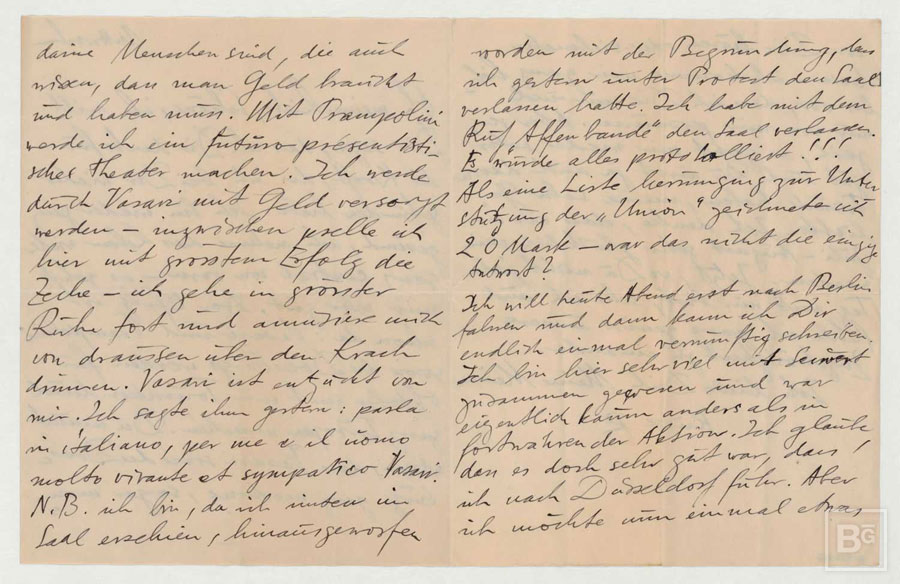 daine Menschen sind, die auch
wissen, dass man Geld braucht
und haben muss. Mit Prampolini
werde ich ein futuro-présentisti-
sches Theater machen. Ich werde
durch Vasari mit Geld versorgt
werden – inzwischen prelle ich
hier mit grösstem Erfolg die
Zeche – ich gehe in grösster
Ruhe fort und amüsiere mich
von draussen über den Krach
drinnen. Vasari ist entzückt von
mir. Ich sagte ihm gestern: parla
in italiano, per me e il uomo
molto vivante et sympatico Vasari.
N.B. ich bin, da ich unten im
Saal erschien, hinausgeworfen
worden mit der Begründung, dass
ich gestern unter Protest den Saal
verlassen hatte. Ich habe mit dem
Ruf „Affenbande" den Saal verlassen.
Es würde alles protokolliert!!!
Als eine Liste herumging zur Unter
stützung der „Union" zeichnete ich
20 Mark – war das nicht die einzige
Antwort?
Ich will heute Abend erst nach Berlin
fahren und dann kann ich Dir
endlich einmal vernünftig schreiben.
Ich bin hier sehr viel mit Seiwert
zusammen gewesen und war
eigentlich kaum anders als in
fortwährender Aktion. Ich glaube
dass es doch sehr gut war, dass
ich nach Düsseldorf fuhr. Aber
ich möchte nun einmal etwas
BG